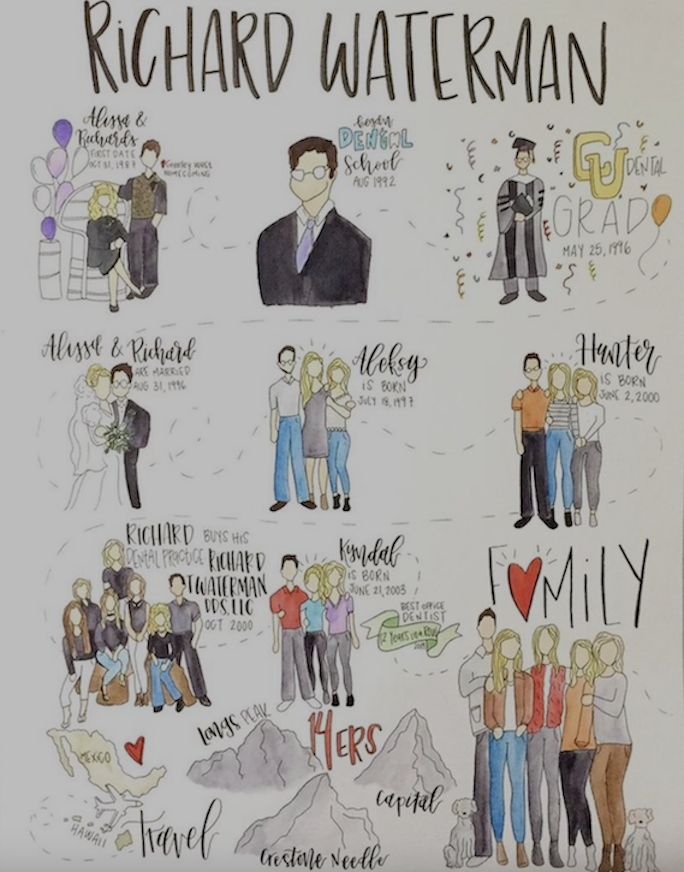 RiCHARD WATERMAN
Alissa &
Richards
FIRST DATE
OCT 31, 1987
Greeley West
HOMECOMING
began
DENTAL
School
AUG 1992
CU DENTAL
GRAD
MAY 25, 1996
Alissa & Richard
ARE MARRIED
AUG 31, 1996
Aleksy
IS BORN
JULY 18, 1997
Hunter
IS BORN
JUNE 2, 2000
RICHARD BUYS HIS
DENTAL PRACTICE RICHARD
T WATERMAN
DDS, LLC
OCT 2000
Kyndal
IS BORN
JUNE 21, 2003
BEST OFFICE
DENTIST
12 Years in a Row
FAMiLY
MEXICO
HAWAII
Travel
Longs PEAK
14ERS
Capital
Crestone Needle